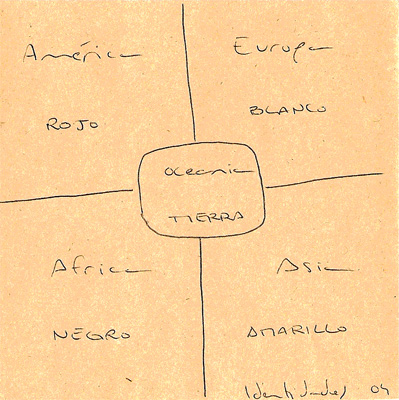 América
ROJO
Europa
BLANCO
Oceania
TIERRA
África
NEGRO
Asia
AMARILLO
Identidades 04